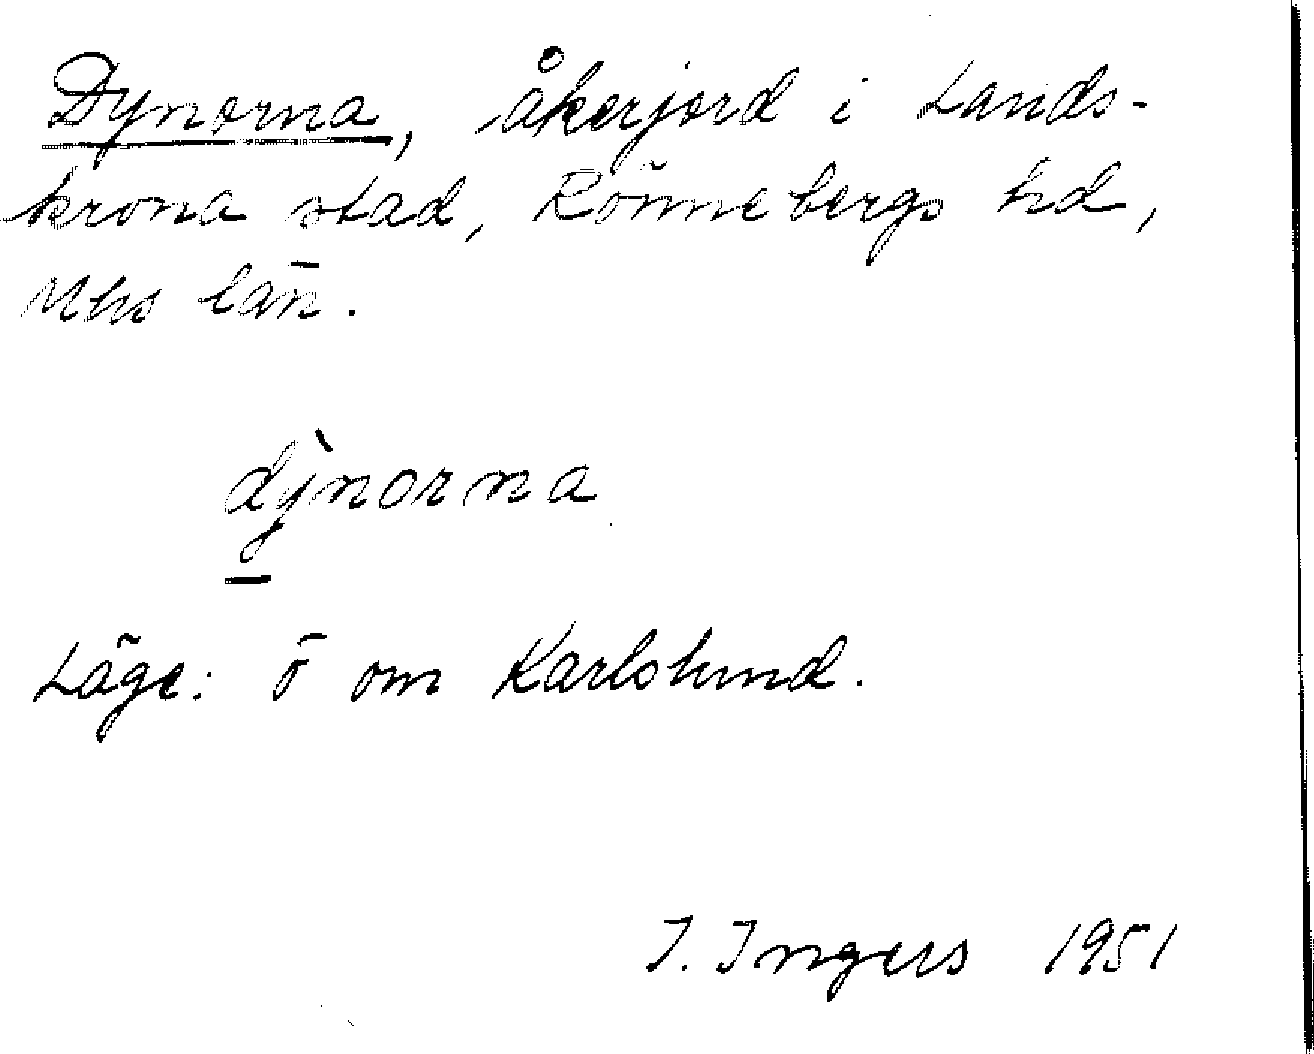 Dynorna, åkerjord i Lands-
krona stad, Rönnebergs hd,
Mhs län.
dỳnorna
Läge: ö om Karlslund.
I. Ingers 1951